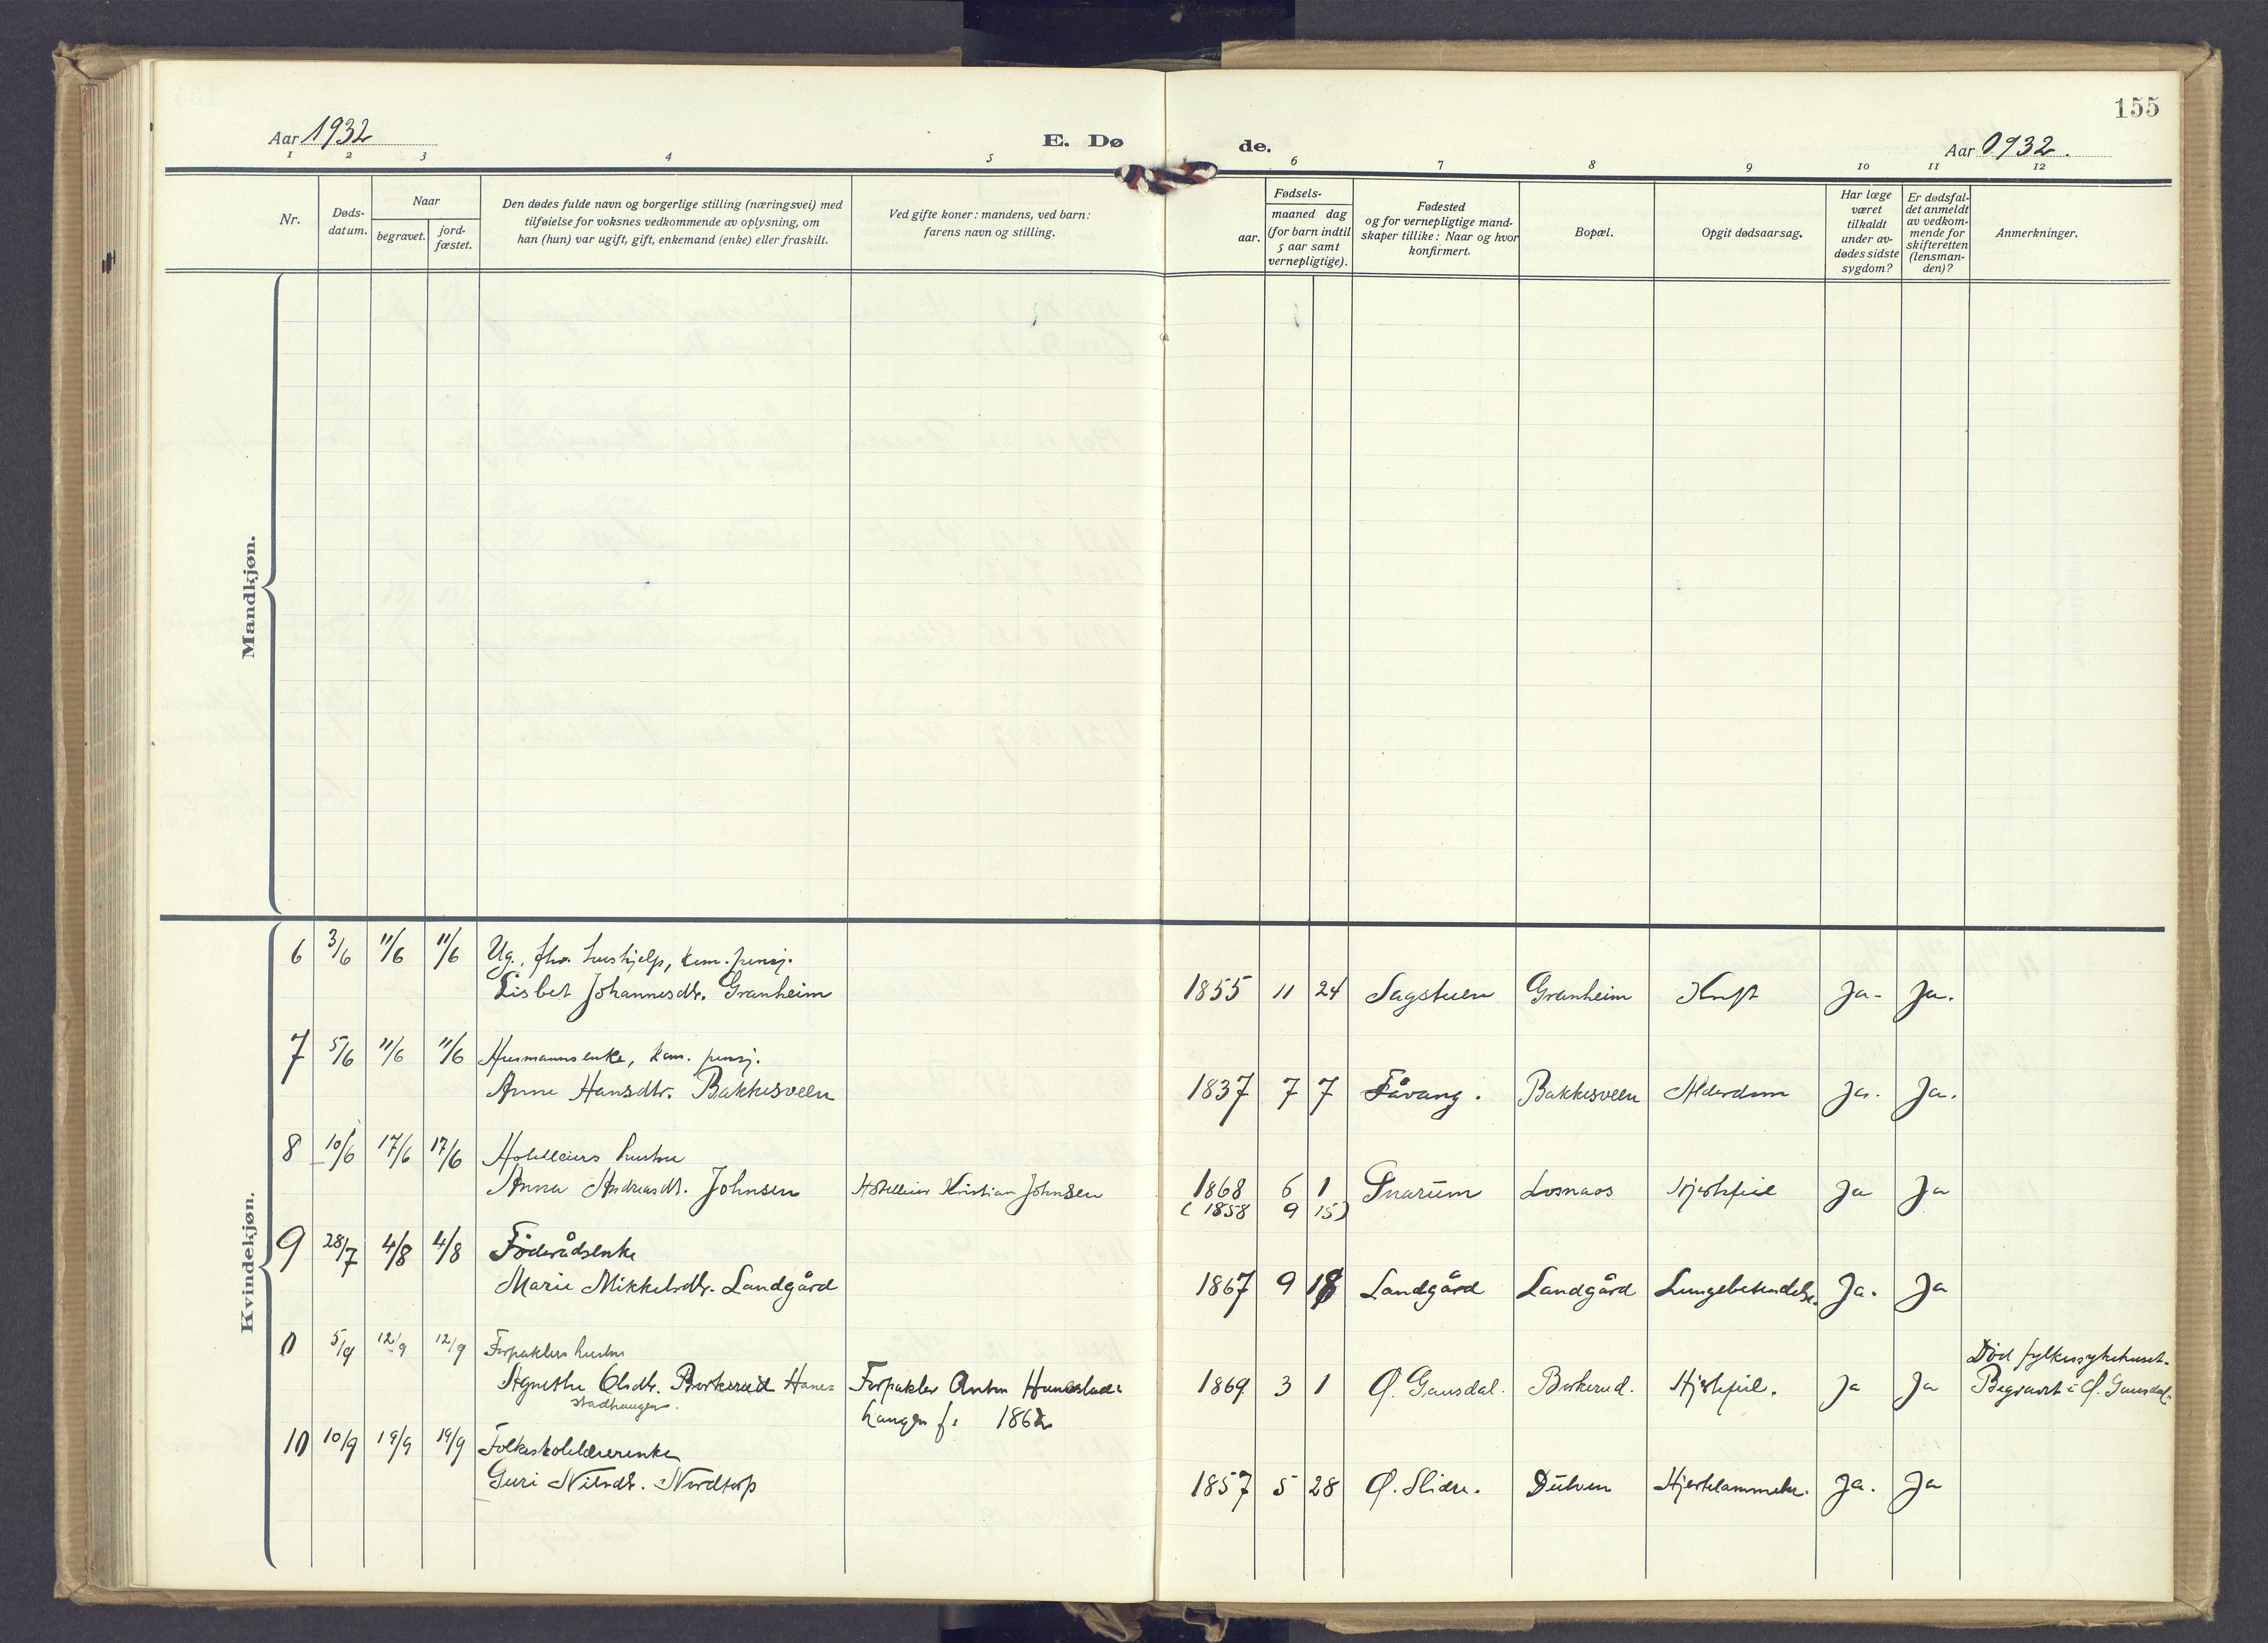 155
Aar 1932
E. Dø
de.
Aar 1932.
1 2 3 4 5 6 7 8 9 10 11 12
Nr.
Døds-
datum.
Naar
begravet.
jord-
fæstet.
Den dødes fulde navn og borgerlige stilling (næringsvei) med
tilføielse for voksnes vedkommende av oplysning, om
han (hun) var ugift, gift, enkemand (enke) eller fraskilt.
Ved gifte koner: mandens, ved barn:
farens navn og stilling.
aar.
Fødsels-
maaned dag
(for barn indtil
5 aar samt
vernepligtige).
Fødested
og for vernepligtige mand-
skaper tillike: Naar og hvor
konfirmert.
Bopæl.
Opgit dødsaarsag.
Har læge
været
tilkaldt
under av-
dødes sidste
sygdom?
Er dødsfal-
det anmeldt
av vedkom-
mende for
skifteretten
(lensman-
den)?
Anmerkninger.
Mandkjøn.
Kvindekjøn.
6 3/6 11/6 11/6 Ug. fhv. hushjelp, kom. pensj.
Lisbet Johannesdtr. Granheim 1855 11 24 Sagstuen Granheim Kreft Ja- Ja.
7 5/6 11/6 11/6 Husmannsenke, kom. pensj.
Anne Hansdtr. Bakkesveen 1837 7 7 Fåvang. Bakkesveen Alderdom Ja. Ja.
8 10/6 17/6 17/6 Hotelleiers hustru
Anna Andreasdt. Johnsen Hotelleier Kristian Johnsen 1868 6 1 Snarum Losnaos Hjertefeil Ja Ja
(1858 9 15)
9 28/7 4/8 4/8 Föderådsenke
Marie Mikkelsdtr. Landgård 1867 9 18 Landgård Landgård Lungebetendelse. Ja. Ja
0 5/9 12/9 12/9 Forpakters hustru Död fylkessykehuset.
Agnethe Olsdtr. Borkerud Hanes= Forpakter Anton Hanestad= 1869 3 1 Ø. Gausdal. Borkerud. Hjertefeil. Ja Ja Begravet i Ø. Gausdal.
stadhaugen.
haugen f. 1862
10 10/9 19/9 19/9 Folkeskolelærerenke
Guri Nilsdt. Nordtorp 1857 5 28 Ø. Slidre. Dulven Hjertelammelse. Ja. Ja